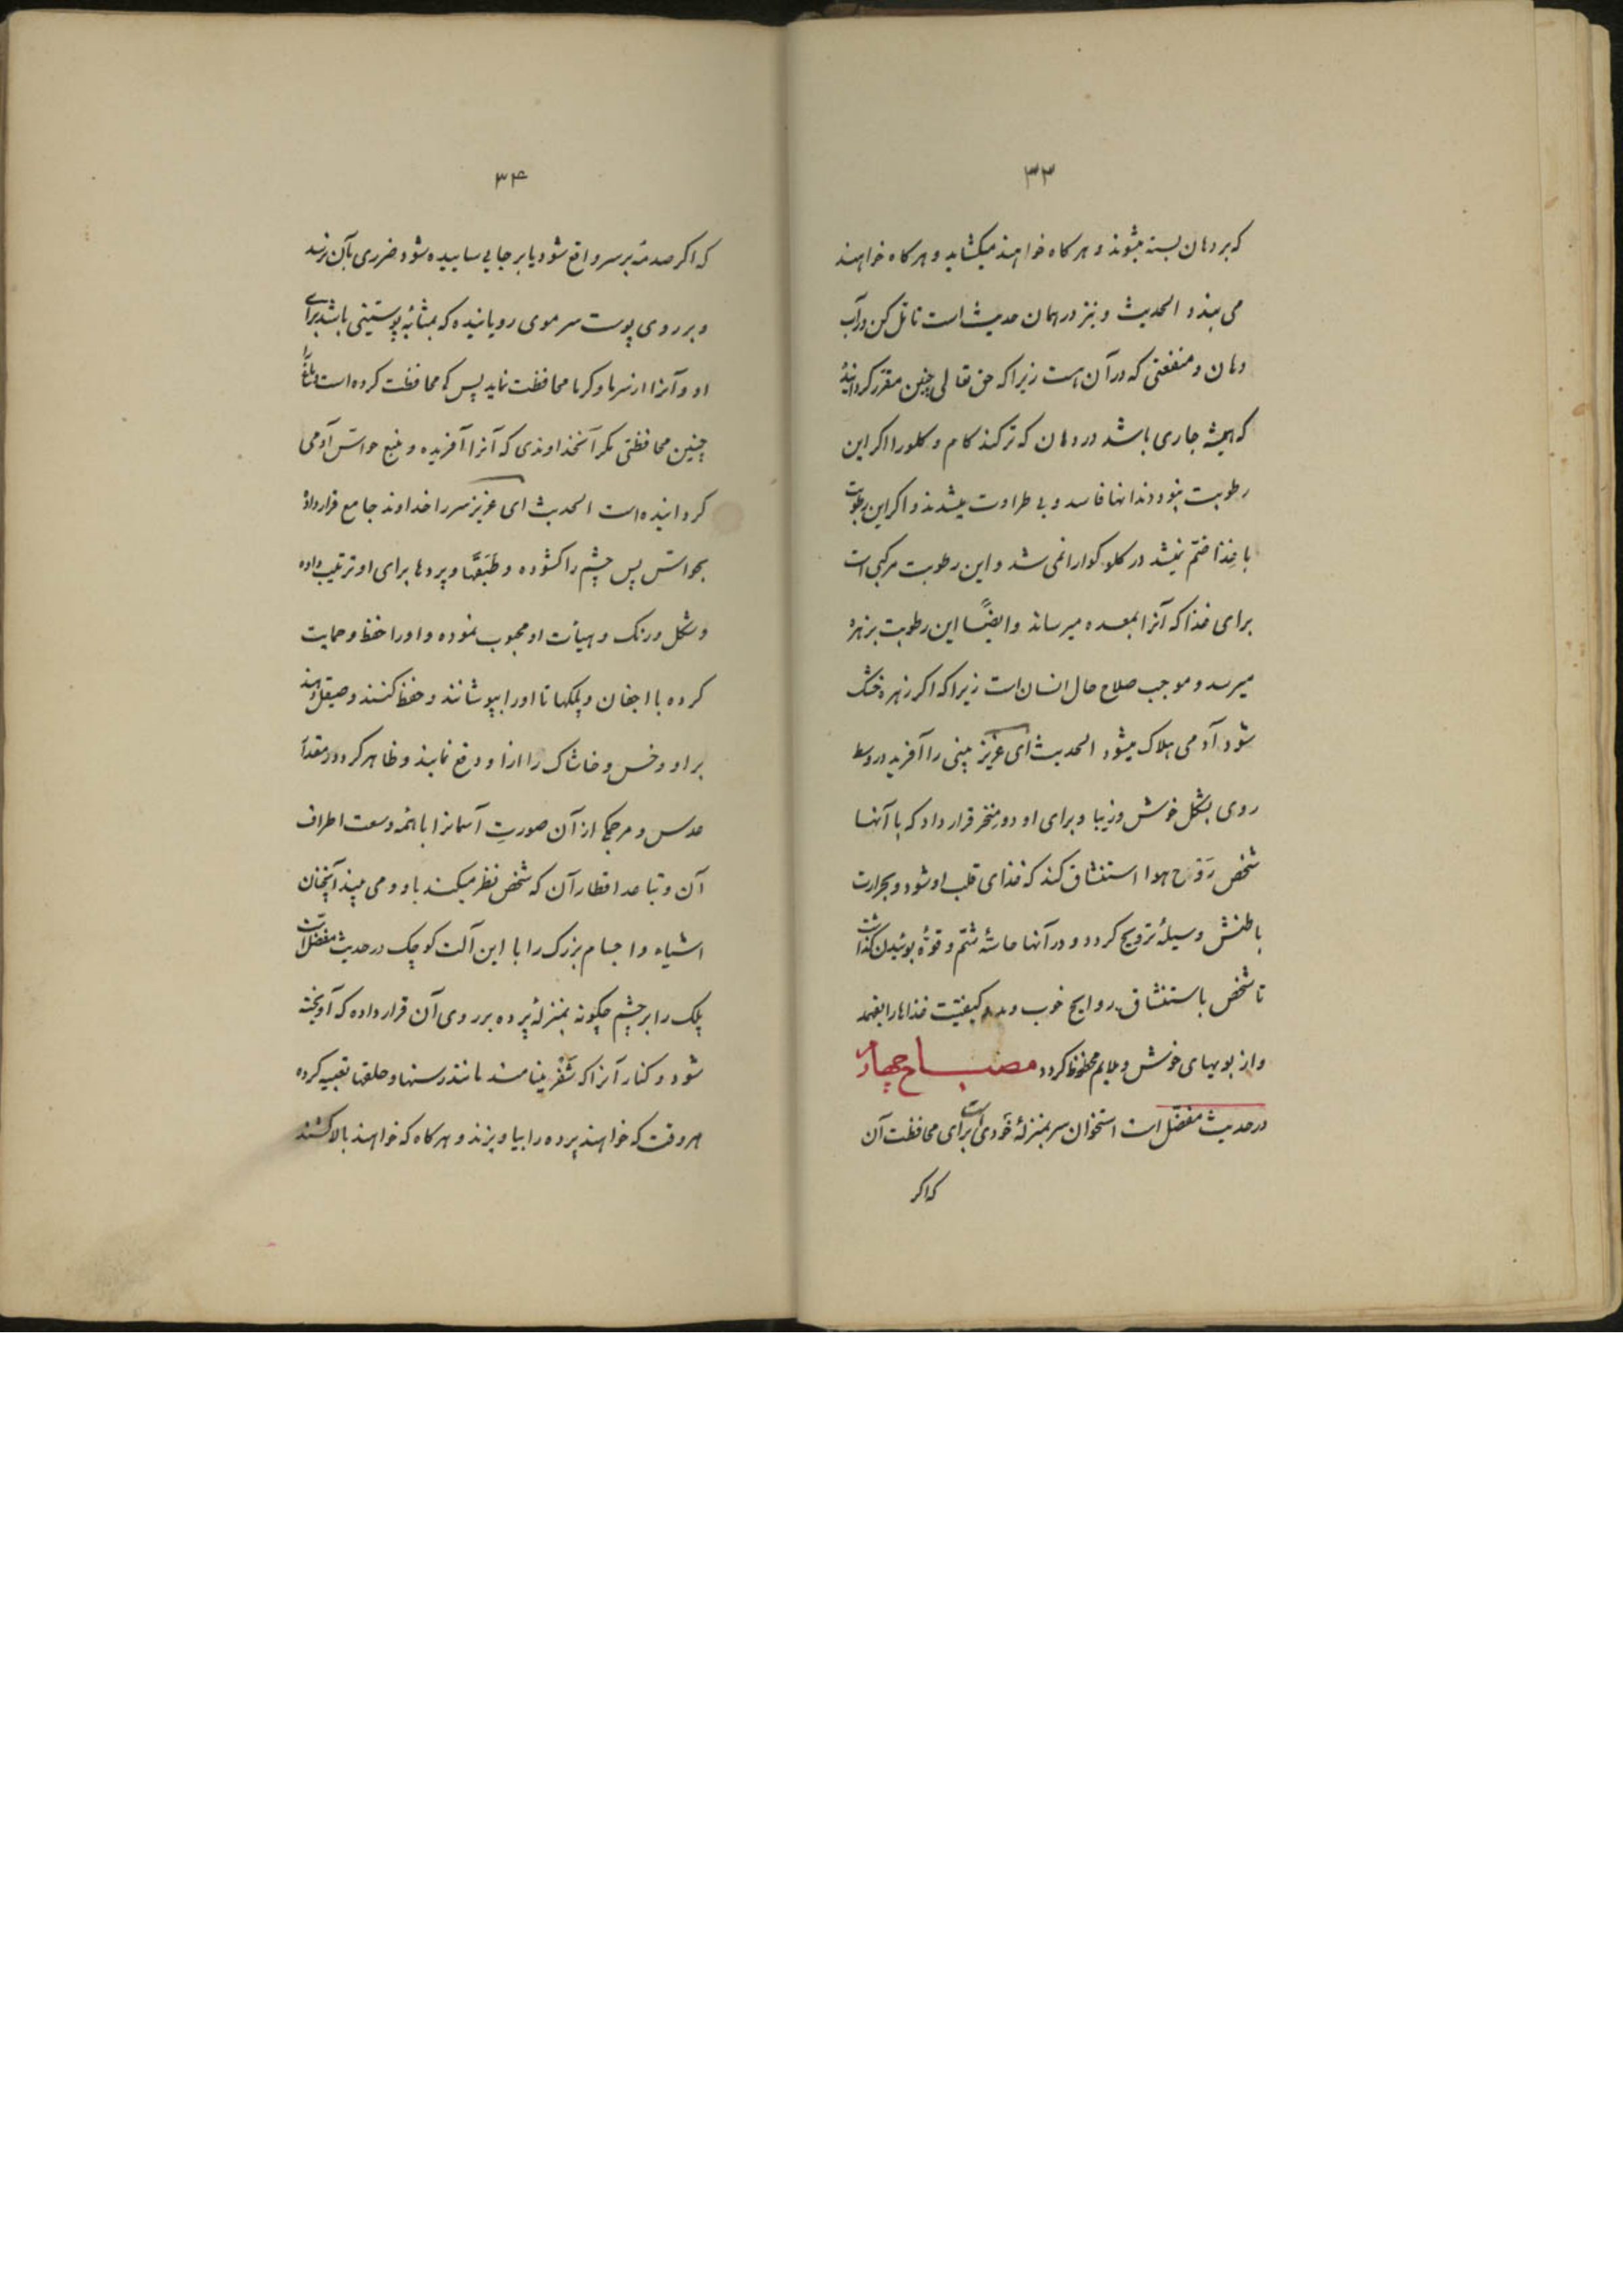 ۳۳
که بر دهان بسته میشوند و هر کاه خواهند میکشاید و هر کاه خواهند
می بندد الحدیث و نیز در همان حدیث است تامّل کن در آب
دهان و منفعتی که در آن هست زیرا که حق تعالی چنین مقرّر کردانیده
که همیشه جاری باشد در دهان که تر کند کام و کلو را اکر این
رطوبت نبود دندانها فاسد و بی طراوت میشدند و اکر این رطوبت
با غذا ضمّ نمیشد در کلو کوارا نمی شد و این رطوبت مرکبی است
برای غذا که آنرا بمعده میرساند و ایضًا این رطوبت بزهره
میرسد و موجب صلاح حال انسان است زیرا که اکر زهره خشک
شود آدمی هلاک میشود الحدیث ای عزیز بینی را آفرید در وسط
روی بشکل خوش و زیبا و برای او دو منخر قرار داد که با آنها
شخص رَوْح هوا استنشاق کند که غذای قلب او شود و بحرارت
باطنش وسیلهٔ ترویح کردد و در آنها حاسّهٔ شمّ و قوّهٔ بوئیدن کذاشت
تا شخص باستنشاق روایح خوب و بد کیفیّت غذاها را بفهمد
و از بویهای خوش و ملایم محظوظ کردد مصباح چهارم
در حدیث مفضّل است استخوان سر بمنزلهٔ خودی است برای محافظت آن
که اکر
۳۴
که اکر صدمهٔ بر سر واقع شود یا بر جایی ساییده شود ضرری بآن نرسد
و بر روی پوست سر موی رویانیده که بمثابهٔ پوستینی باشد برای
او و آنرا از سرما و کرما محافظت نماید پس که محافظت کرده است دماغ را
چنین محافظتی مکر آنخداوندی که آنرا آفریده و منبع حواسّ آدمی
کردانیده است الحدیث ای عزیز سر را خداوند جامع قرار داد
بحواسّ پس چشم را کشوده و طَبَقها و پردها برای او ترتیب داده
و شکل و رنک و هیأت او محبوب نموده و او را حفظ و حمایت
کرده با اجفان و پلکها تا او را بپوشانند و حفظ کنند و صیقل دهند
بر او و خس و خاشاک را از او دفع نمایند و ظاهر کردد در مقدار
عدس و مرجکی از آن صورتِ آسمانرا با همه وسعت اطراف
آن و تباعد اقطار آن که شخص نظر میکند باو و می بیند آنچنان
اشیاء و اجسام بزرک را با این آلت کوچک در حدیث مفضل است
پلک را بر چشم چکونه بمنزلهٔ پرده بر روی آن قرار داده که آویخته
شود و کنار آنرا که شَفْر مینامند مانند رسنها و حلقها تعبیه کرده
هر وقت که خواهند پرده را بیاویزند و هر کاه که خواهند بالا کشند